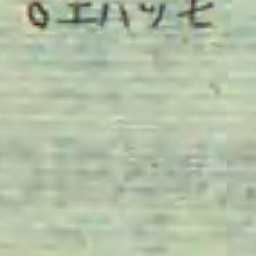 0エハツセ